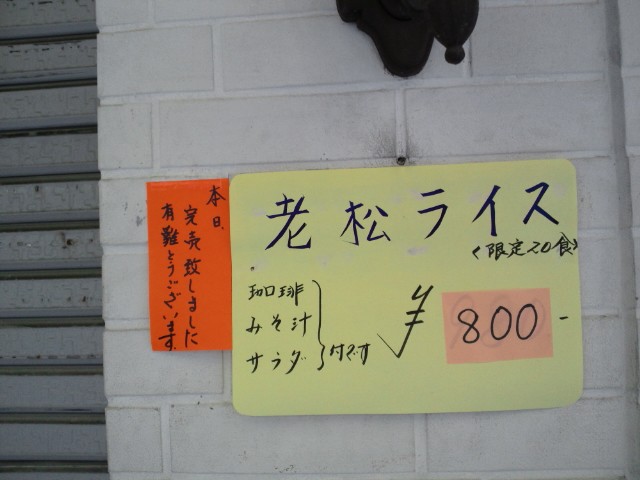 老松ライス
(限定20食)
珈琲
みそ汁
サラダ
付です
¥800-
本日、
完売致しました
有難とうございます。